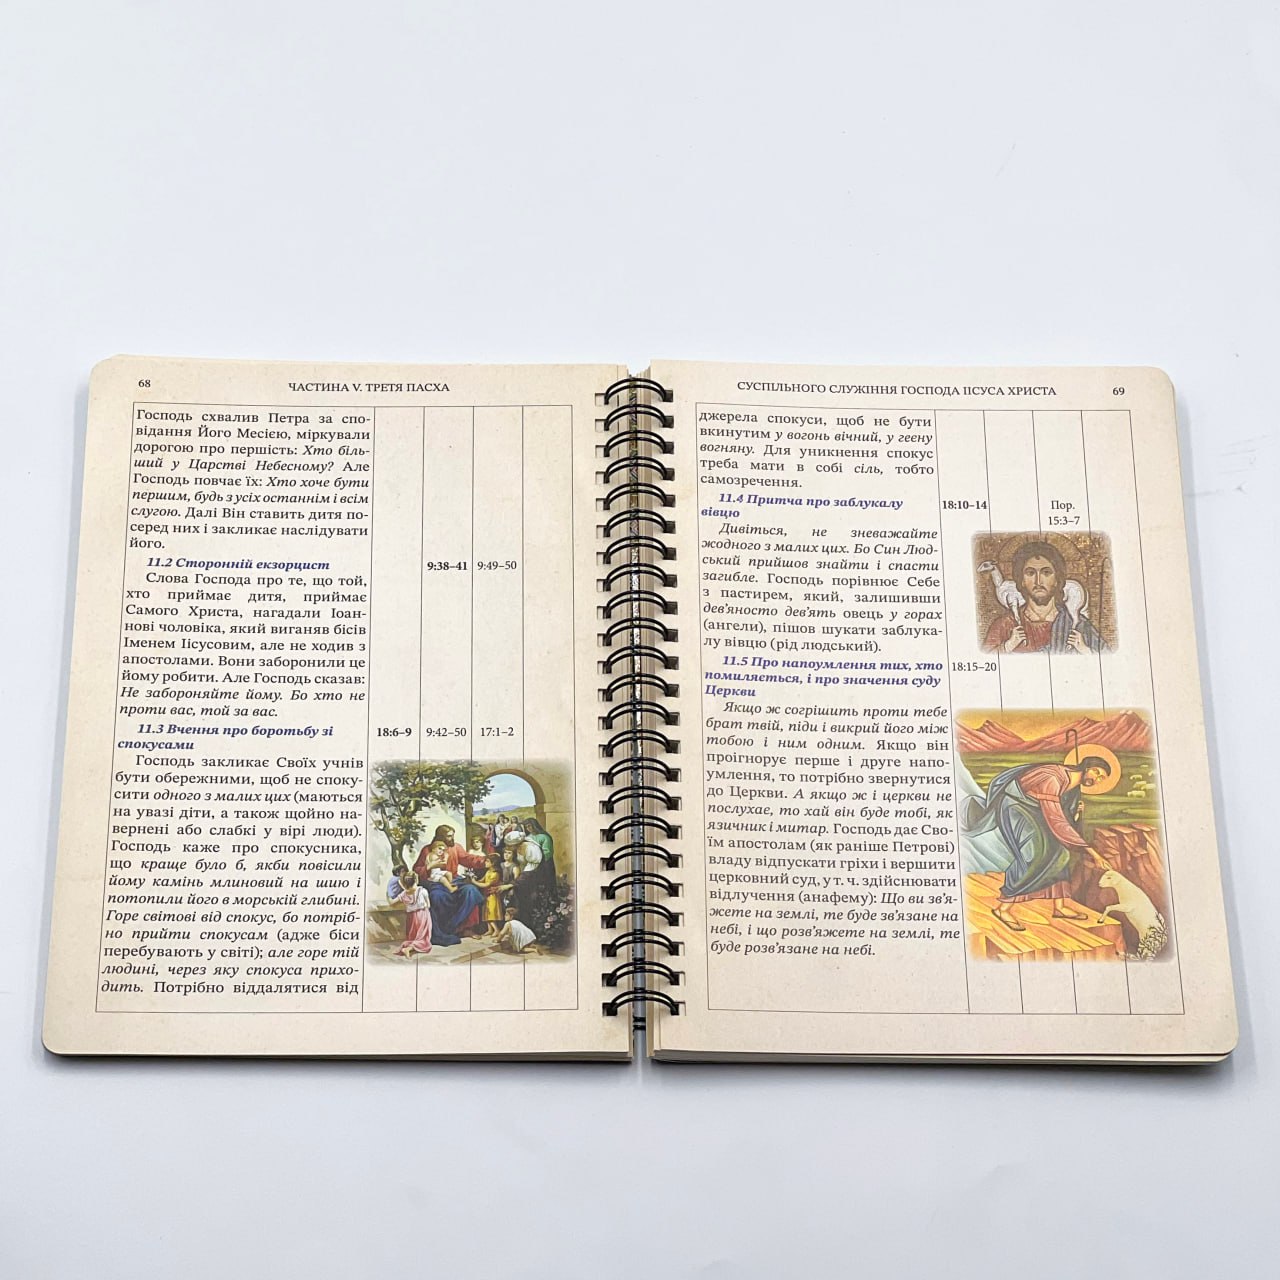 68
ЧАСТИНА V. ТРЕТЯ ПАСХА
Господь схвалив Петра за спо-
відання Його Месією, міркували
дорогою про першість: Хто біль-
ший у Царстві Небесному? Але
Господь повчає їх: Хто хоче бути
першим, будь з усіх останнім і всім
слугою. Далі Він ставить дитя по-
серед них і закликає наслідувати
його.
11.2 Сторонній екзорцист
9:38–41
9:49–50
Слова Господа про те, що той,
хто приймає дитя, приймає
Самого Христа, нагадали Іоан-
нові чоловіка, який виганяв бісів
Іменем Іісусовим, але не ходив з
апостолами. Вони заборонили це
йому робити. Але Господь сказав:
Не забороняйте йому. Бо хто не
проти вас, той за вас.
11.3 Вчення про боротьбу зі
спокусами
18:6–9
9:42–50
17:1–2
Господь закликає Своїх учнів
бути обережними, щоб не споку-
сити одного з малих цих (маються
на увазі діти, а також щойно на-
вернені або слабкі у вірі люди).
Господь каже про спокусника,
що краще було б, якби повісили
йому камінь млиновий на шию і
потопили його в морській глибині.
Горе світові від спокус, бо потріб-
но прийти спокусам (адже біси
перебувають у світі); але горе тій
людині, через яку спокуса прихо-
дить. Потрібно віддалятися від
СУСПІЛЬНОГО СЛУЖІННЯ ГОСПОДА ІІСУСА ХРИСТА
69
джерела спокуси, щоб не бути
вкинутим у вогонь вічний, у геєну
вогняну. Для уникнення спокус
треба мати в собі сіль, тобто
самозречення.
11.4 Притча про заблукалу
вівцю
18:10–14
Пор.
15:3–7
Дивіться, не зневажайте
жодного з малих цих. Бо Син Люд-
ський прийшов знайти і спасти
загибле. Господь порівнює Себе
з пастирем, який, залишивши
дев'яносто дев'ять овець у горах
(ангели), пішов шукати заблука-
лу вівцю (рід людський).
11.5 Про напоумлення тих, хто
помиляється, і про значення суду
Церкви
18:15–20
Якщо ж согрішить проти тебе
брат твій, піди і викрий його між
тобою і ним одним. Якщо він
проігнорує перше і друге напо-
умлення, то потрібно звернутися
до Церкви. А якщо ж і церкви не
послухає, то хай він буде тобі, як
язичник і митар. Господь дає Сво-
їм апостолам (як раніше Петрові)
владу відпускати гріхи і вершити
церковний суд, у т. ч. здійснювати
відлучення (анафему): Що ви зв'я-
жете на землі, те буде зв'язане на
небі, і що розв'яжете на землі, те
буде розв'язане на небі.